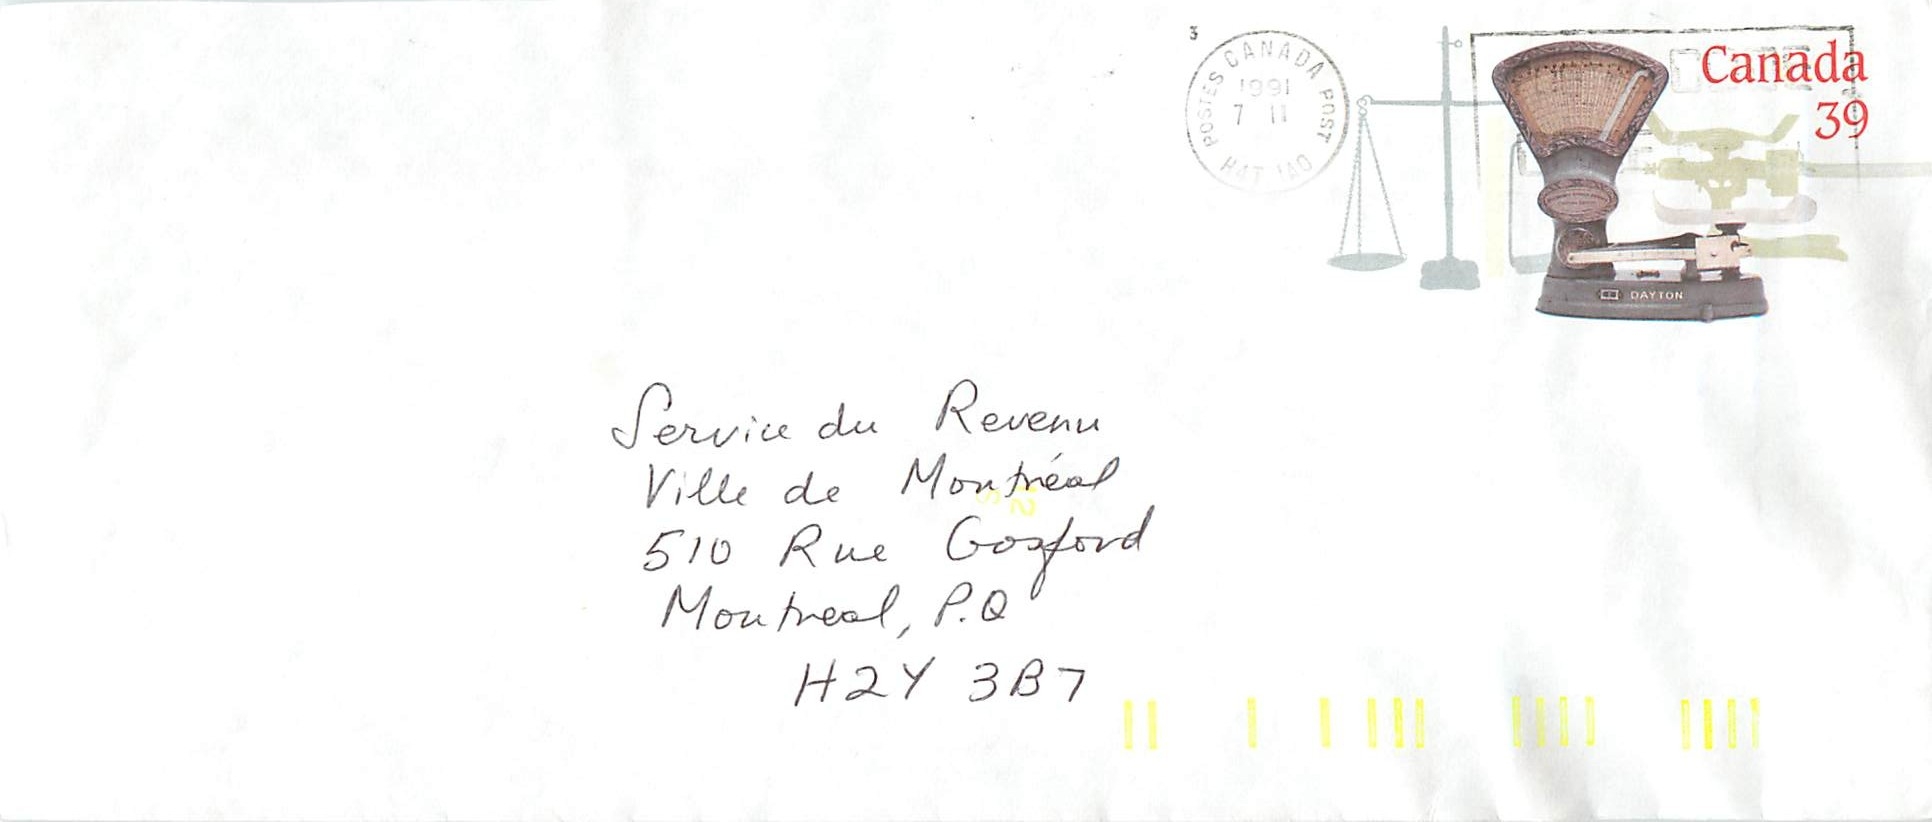 3
POSTES CANADA POST
1991
7 11
H4T 1A0
Canada
39
DAYTON
Service du Revenu
Ville de Montréal
510 Rue Gosford
Montreal, P.Q
H2Y 3B7